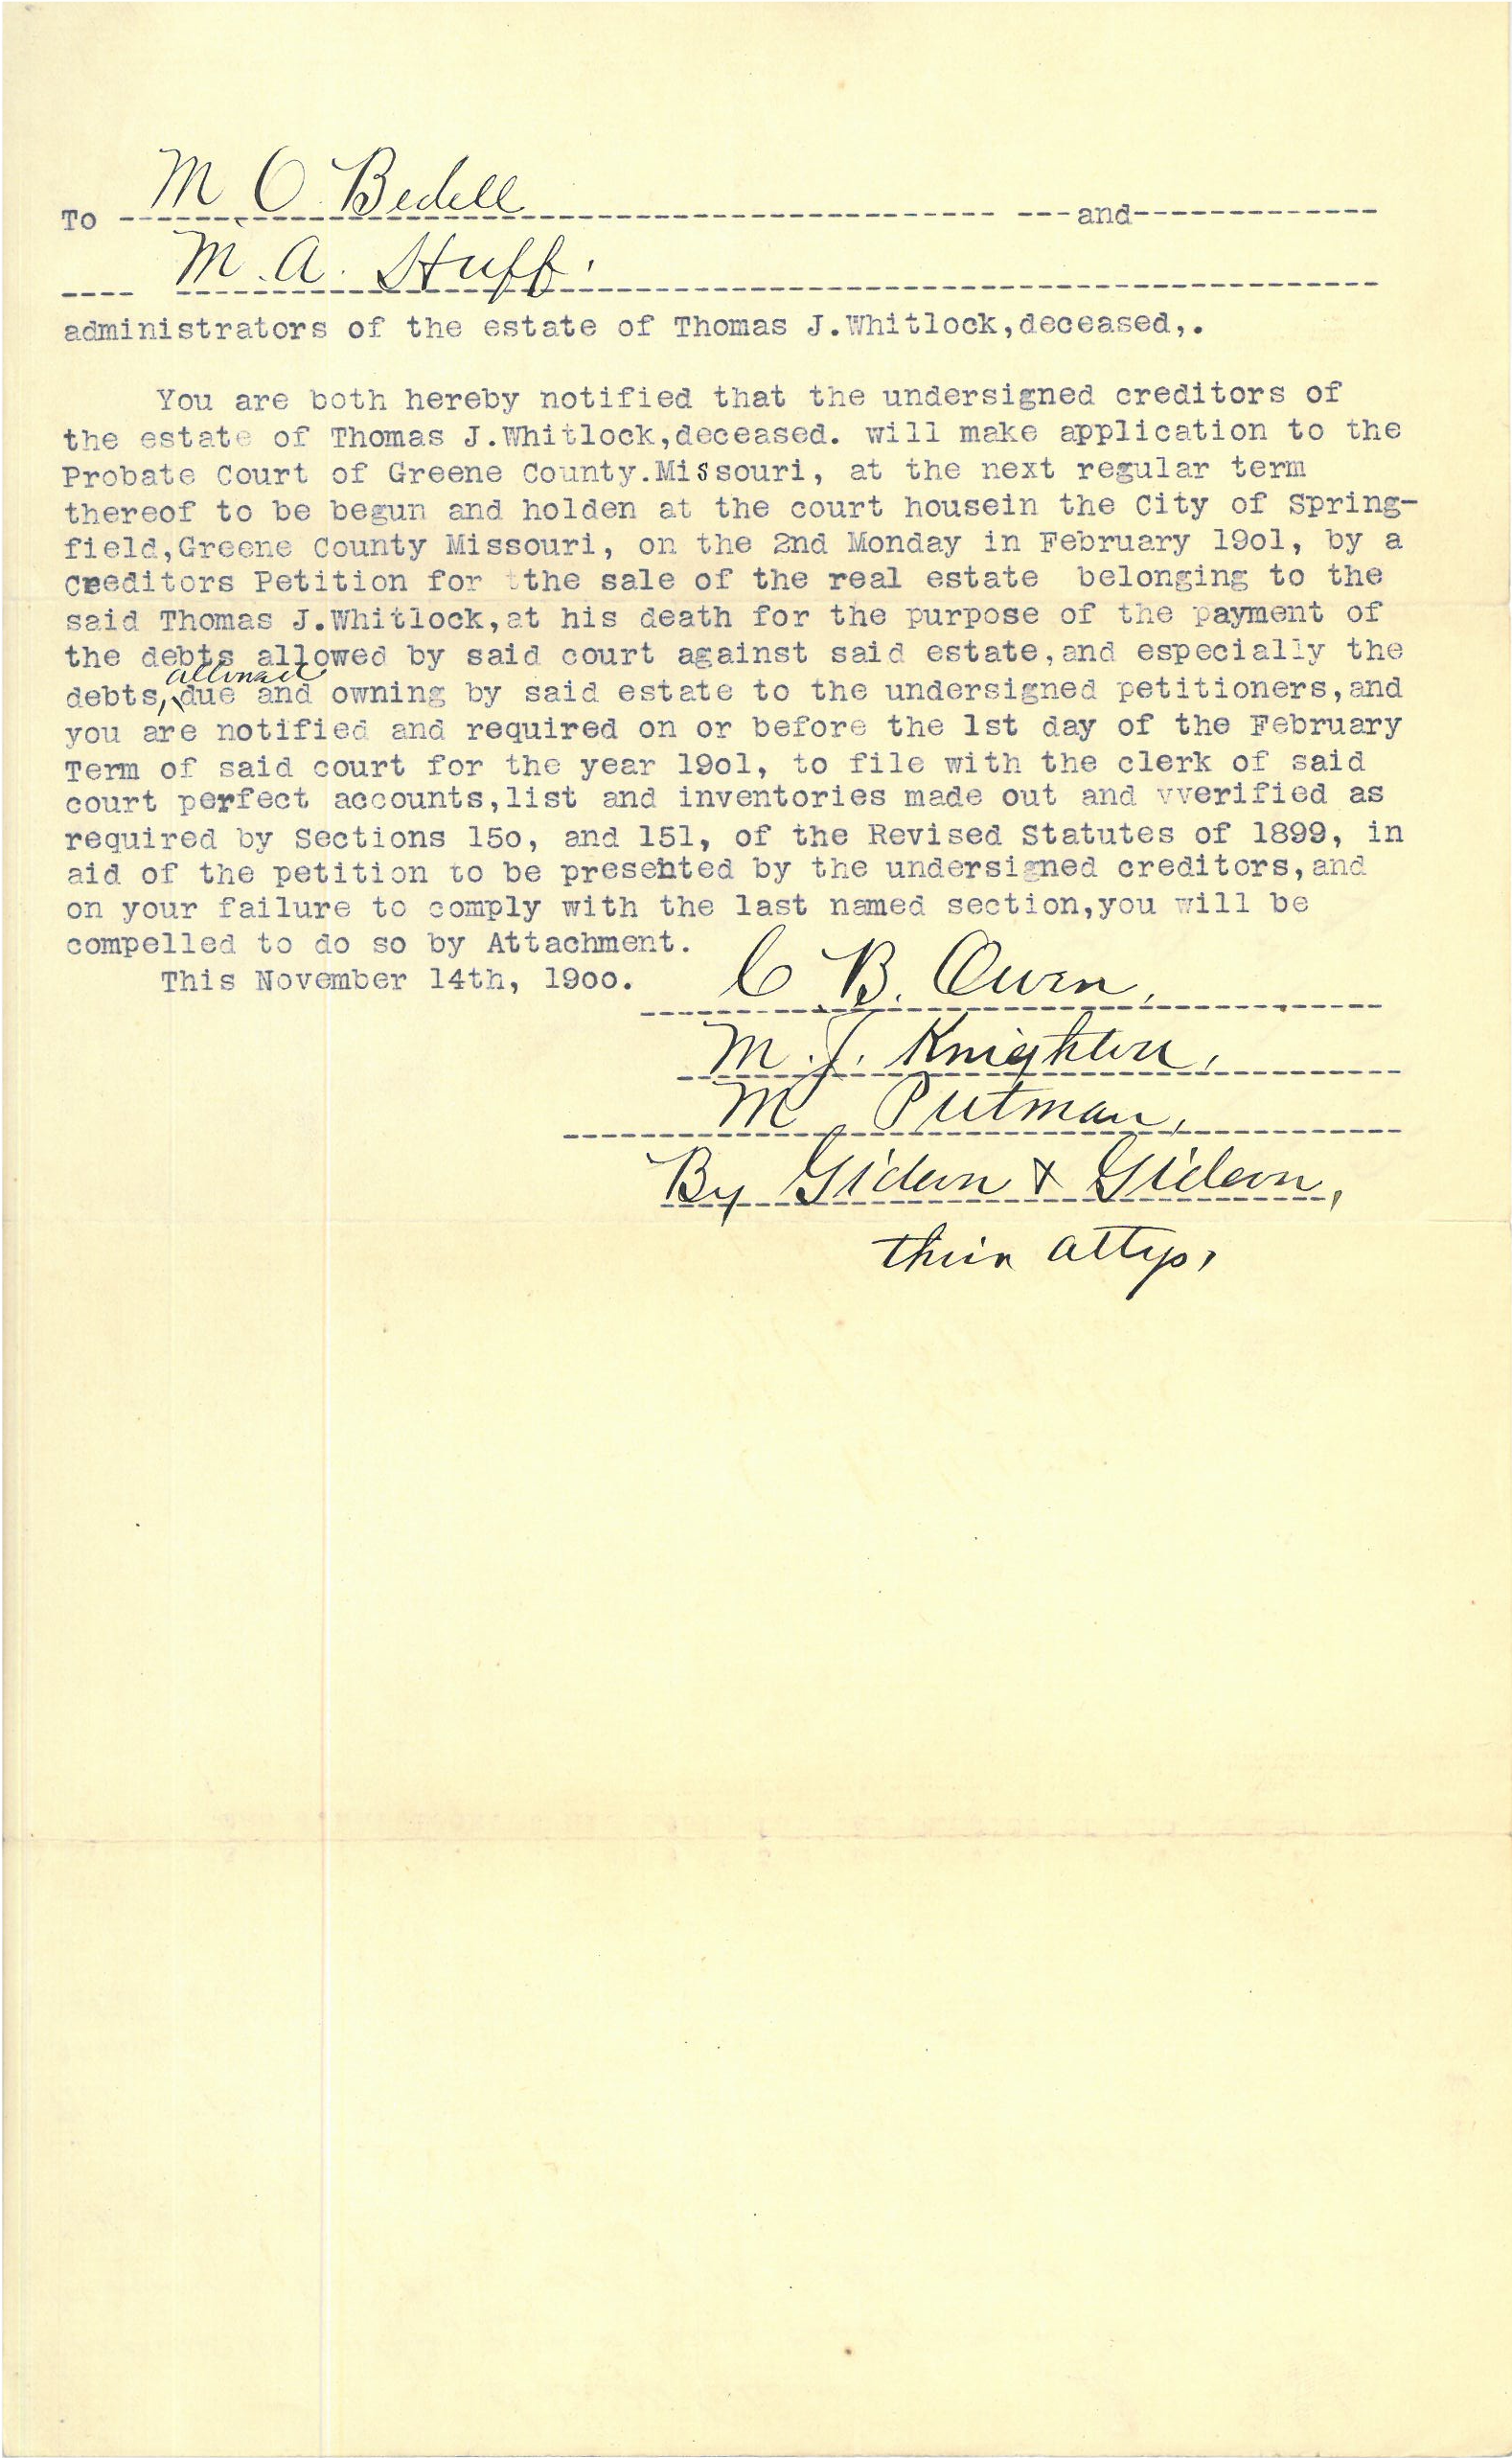 To M C Bedell and
M. A. Huff.
administrators of the estate of Thomas J.Whitlock,deceased,.
You are both hereby notified that the undersigned creditors of
the estate of Thomas J.Whitlock,deceased. will make application to the
Probate Court of Greene County.Missouri, at the next regular term
thereof to be begun and holden at the court housein the City of Spring-
field,Greene County Missouri, on the 2nd Monday in February 19o1, by a
Creditors Petition for tthe sale of the real estate belonging to the
said Thomas J.Whitlock,at his death for the purpose of the payment of
the debts allowed by said court against said estate,and especially the
allowed
debts, due and owning by said estate to the undersigned petitioners,and
you are notified and required on or before the 1st day of the February
Term of said court for the year 19o1, to file with the clerk of said
court perfect accounts,list and inventories made out and vverified as
required by Sections 15o, and 151, of the Revised Statutes of 1899, in
aid of the petition to be presented by the undersigned creditors,and
on your failure to comply with the last named section,you will be
compelled to do so by Attachment.
This November 14th, 19oo.
C B. Owen,
M. J. Knighton,
M Putman,
By Gideon & Gideon,
their attys,